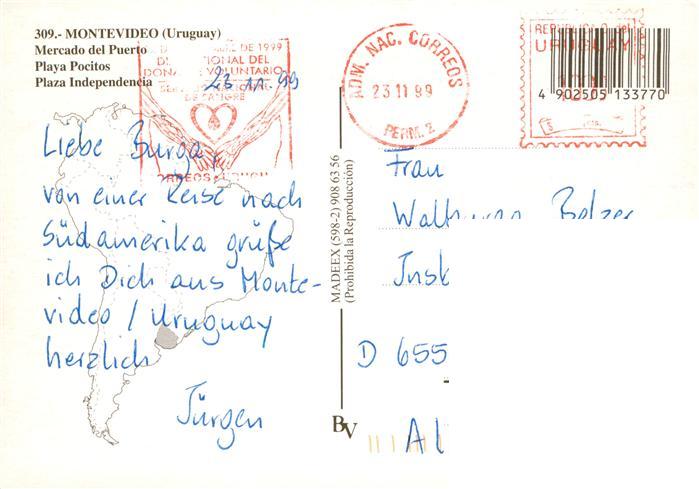 309.- MONTEVIDEO (Uruguay)
Mercado del Puerto
Playa Pocitos
Plaza Independencia
DE 1999
NAL DEL
VOLUNTARIO
DE SANGRE
23.11.99
ADM. NAC. CORREOS
23 11 99
PERM. 2
URUGUAY
4 902505 133770
Liebe Burga,
von einer Reise nach
Südamerika grüße
ich Dich aus Monte-
video / Uruguay
herzlich
Jürgen
MADEEX (598-2) 908 63 56
(Prohibida la Reproducción)
BV
Frau
D 655